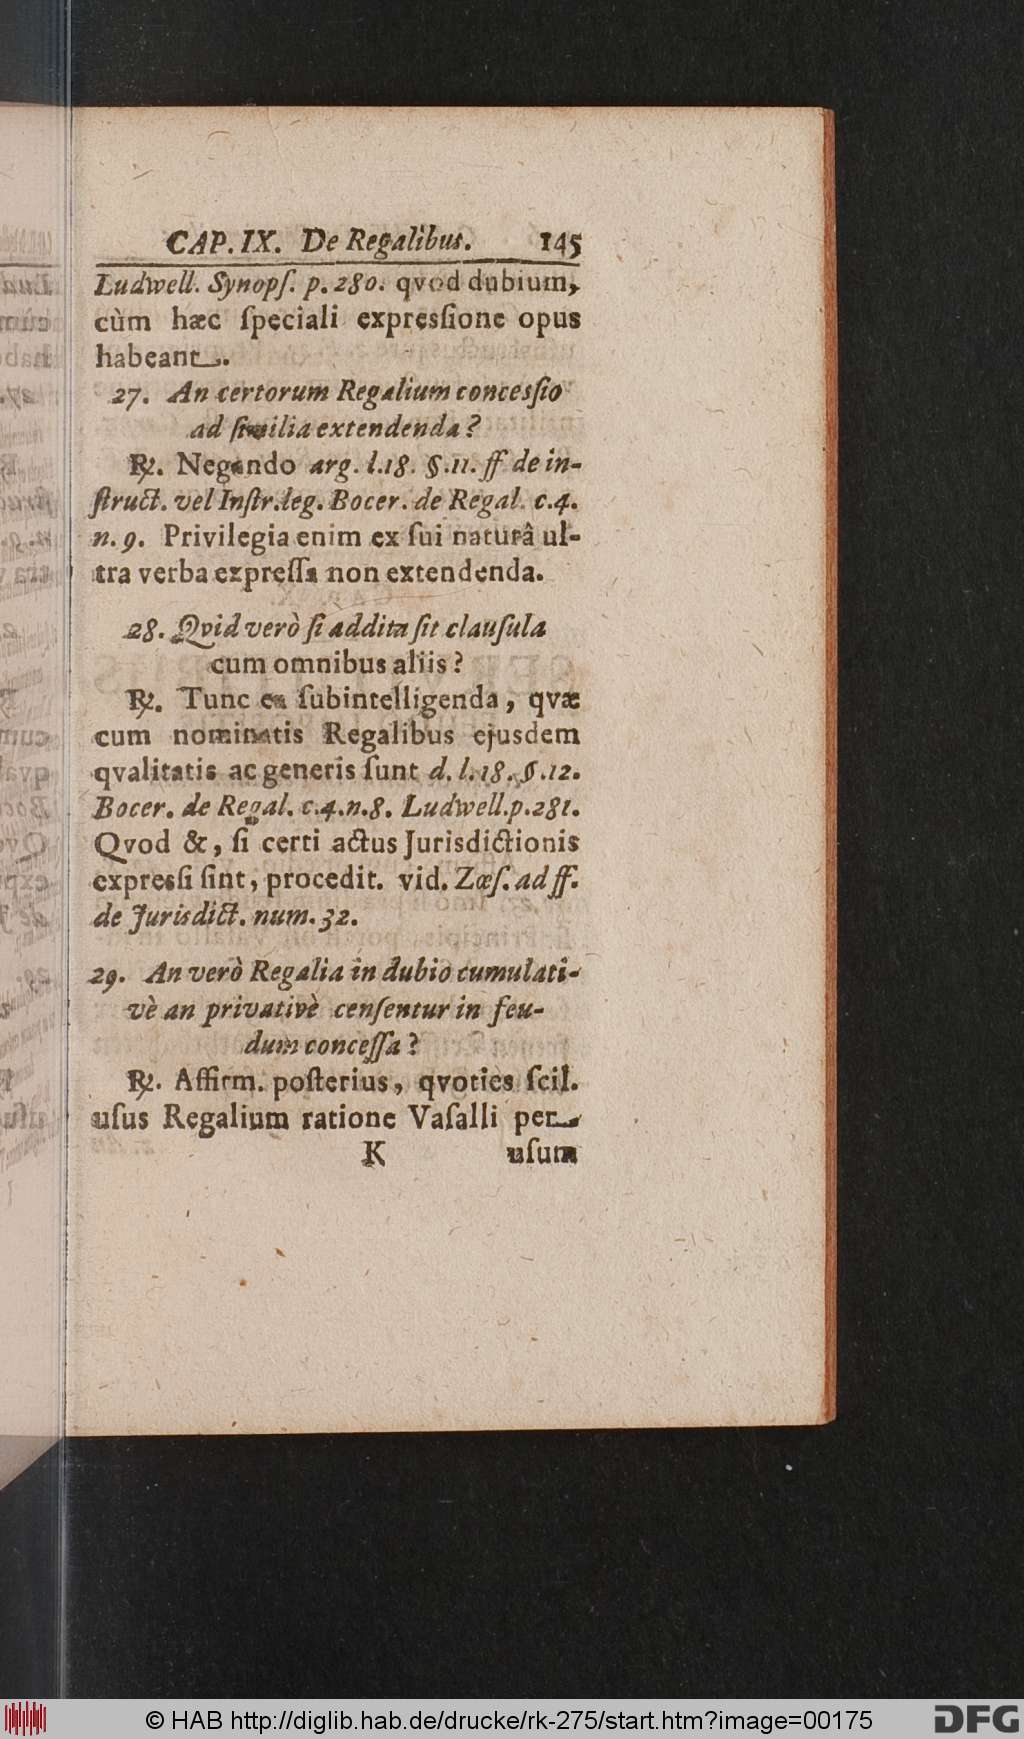 CAP. IX. De Regalibus. 145
Ludwell. Synopſ. p. 280. qvod dubium,
cùm hæc ſpeciali expresſione opus
habeant.
27. An certorum Regalium concesſio
ad ſimilia extendenda?
℞. Negando arg. l. 18. §. 11. ff de in-
ſtruct. vel Inſtr. leg. Bocer. de Regal. c. 4.
n. 9. Privilegia enim ex ſui naturâ ul-
tra verba expreſſa non extendenda.
28. Qvid verò ſi addita ſit clauſula
cum omnibus aliis?
℞. Tunc ea ſubintelligenda, qvæ
cum nominatis Regalibus ejusdem
qvalitatis ac generis ſunt d. l. 18. §. 12.
Bocer. de Regal. c. 4. n. 8. Ludwell. p. 281.
Qvod &, ſi certi actus Jurisdictionis
expresſi ſint, procedit. vid. Zœſ. ad ff.
de Jurisdict. num. 32.
29. An verò Regalia in dubio cumulati-
vè an privativè cenſentur in feu-
dum conceſſa?
℞. Affirm. poſterius, qvoties ſcil.
uſus Regalium ratione Vaſalli per
K uſum
© HAB http://diglib.hab.de/drucke/rk-275/start.htm?image=00175
DFG